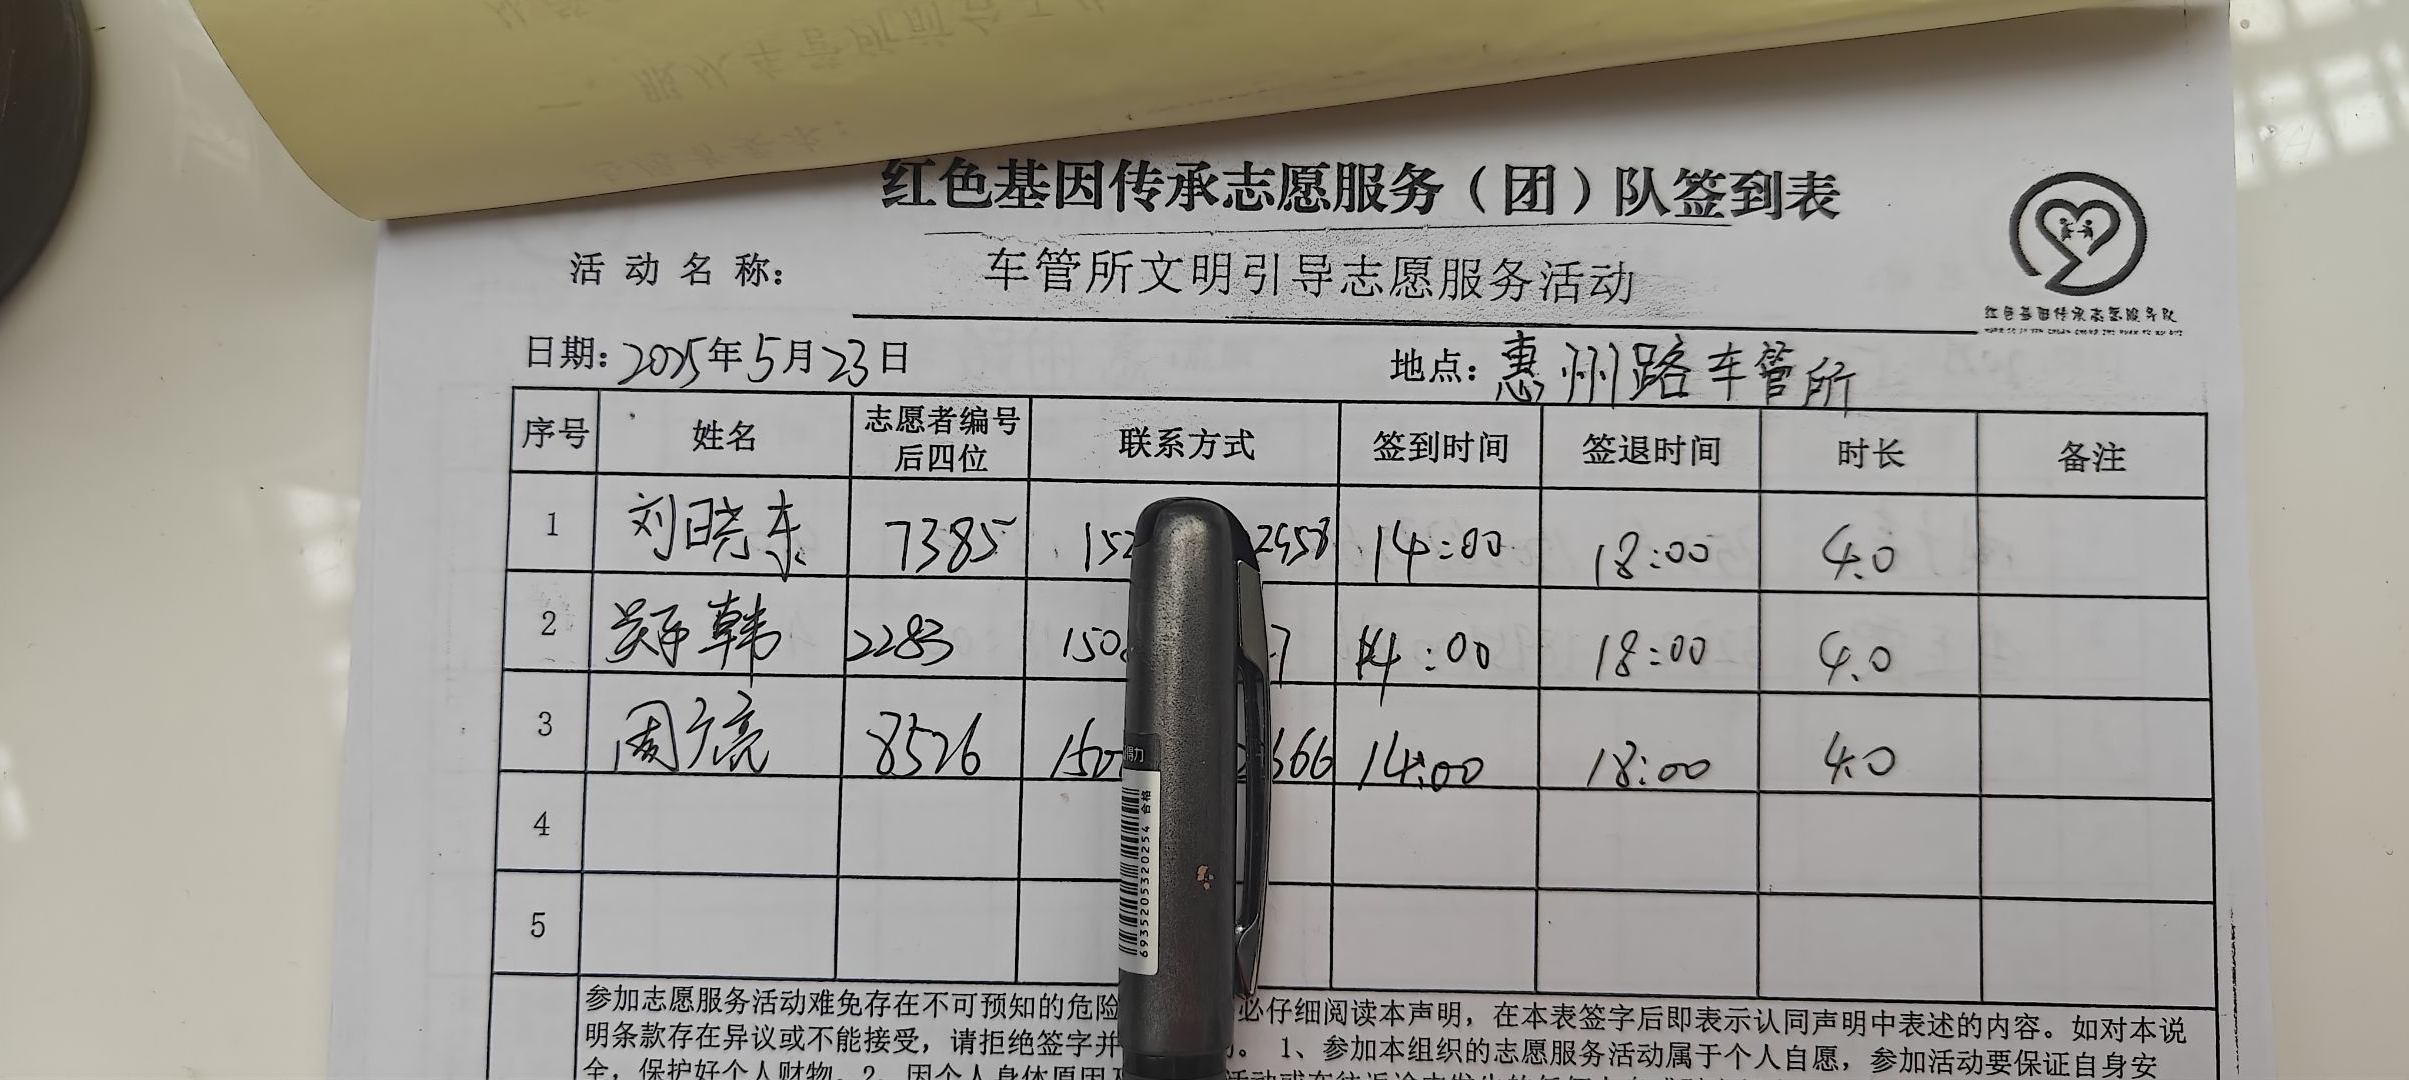 一、服从车管所前台工
红色基因传承志愿服务（团）队签到表
活动名称： 车管所文明引导志愿服务活动
红色基因传承志愿服务队
日期：2025年5月23日 地点：惠州路车管所
序号 姓名 志愿者编号后四位 联系方式 签到时间 签退时间 时长 备注
1 刘晓东 7385 152 2458 14:00 18:00 4.0
2 韩 2283 150 7 14:00 18:00 4.0
3 周广亮 8526 150 366 14:00 18:00 4.0
4
5
得力
6935205320254 合格
参加志愿服务活动难免存在不可预知的危险 必仔细阅读本声明，在本表签字后即表示认同声明中表述的内容。如对本说
明条款存在异议或不能接受，请拒绝签字并 。 1、参加本组织的志愿服务活动属于个人自愿，参加活动要保证自身安
全，保护好个人财物。2、因个人身体原因及